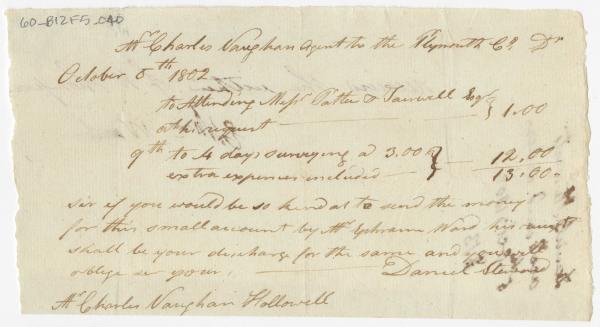 60-B12F5-040
Mr Charles Vaughan agent to the Plymouth Co Dr
October 8th 1802
to Attending Messrs Potter & Farwell Esqr } 1.00
at his request
9th to 4 days surveying a 3.00 } 12.00
extra expences included 13.00
sir if you would be so kind as to send the money
for this small account by Mr Ephraim Ward his
shall be your discharge for the same and you will
oblige sir your
Daniel
Mr Charles Vaughan Hollowell